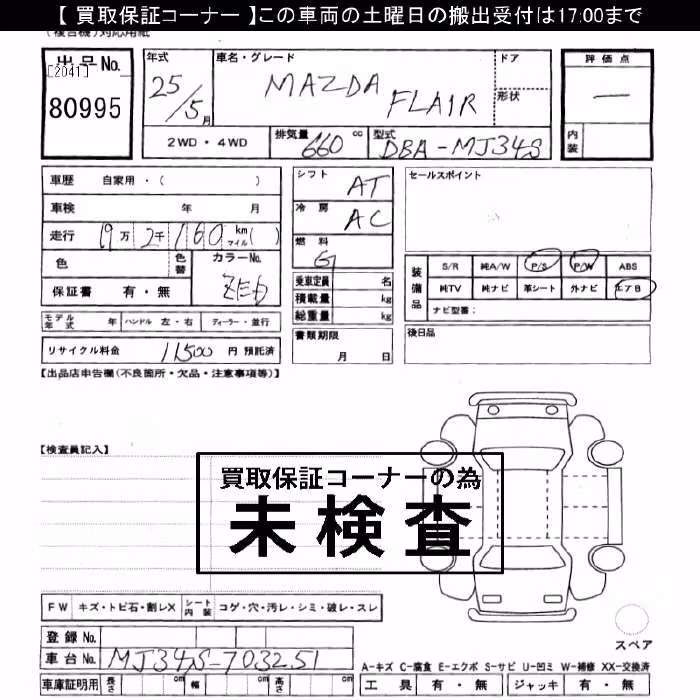 【 買取保証コーナー 】この車両の土曜日の搬出受付は17:00まで
(複合機)対応用紙
出品No.
[2041]
80995
年式
25/5月
車名・グレード
MAZDA FLAIR
ドア
形状
評価点
—
内装
2WD・4WD
排気量 660 cc
型式 DBA-MJ34S
車歴 自家用・( )
車検 年 月
走行 19万2千160 km マイル( )
色
色替
カラーNo.
ZEJ
保証書 有・無
モデル年式 年 ハンドル 左・右 ディーラー・並行
リサイクル料金 11500 円 預託済
シフト AT
冷房 AC
燃料 G
乗車定員 名
積載量 kg
総重量 kg
書類期限
月 日
セールスポイント
装備品
S/R 純A/W P/S P/W ABS
純TV 純ナビ 革シート 外ナビ エアB
ナビ型番:
後日品
【出品店申告欄(不良箇所・欠品・注意事項等)】
【検査員記入】
買取保証コーナーの為
未検査
FW キズ・トビ石・割レX シート内装 コゲ・穴・汚レ・シミ・破レ・スレ
登録No.
車台No. MJ34S-703251
車庫証明用 長さ cm 幅 cm 高さ cm
スペア
A-キズ C-腐食 E-エクボ S-サビ U-凹ミ W-補修 XX-交換済
工具 有・無 ジャッキ 有・無